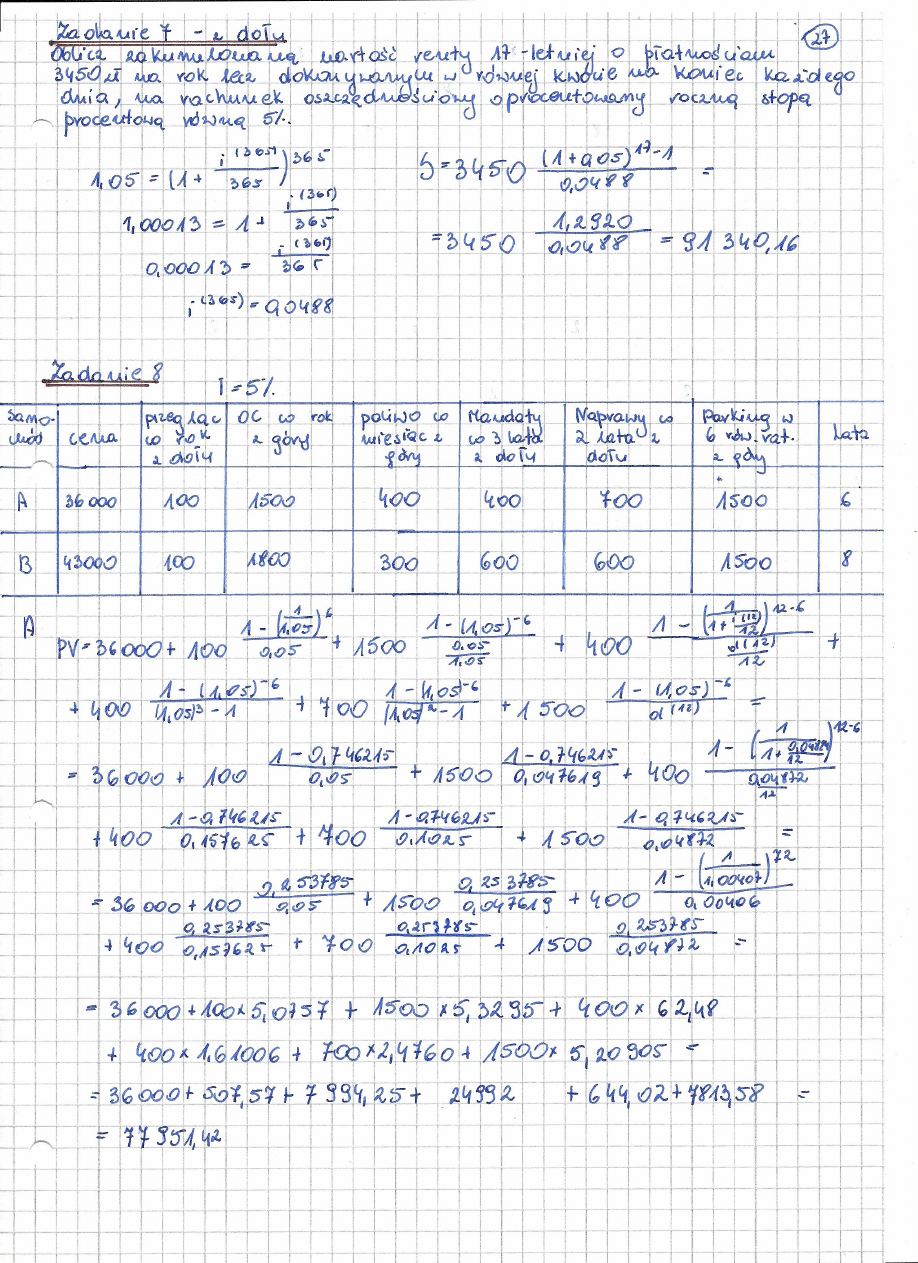 Zadanie 7 - z dołu
27
Oblicz zakumulowaną wartość renty 17-letniej o płatnościach
3450 zł na rok lecz dokonywanym w równej kwocie na koniec każdego
dnia, na rachunek oszczędnościowy oprocentowany roczną stopą
procentową równą 5%.
1,05 = (1 + i^(365)/365)^365
S = 3450 (1+0,05)^17-1 / 0,0488 =
1,00013 = 1 + i^(365)/365
= 3450 1,2920/0,0488 = 91 340,16
0,00013 = i^(365)/365
i^(365) = 0,0488
Zadanie 8
I = 5%
Samochód | cena | przegląd co rok z dołu | OC co rok z góry | paliwo co miesiąc z góry | Mandaty co 3 lata z dołu | Naprawy co 2 lata z dołu | Parking w 6 rów. rat. z góry | Lata
A | 36 000 | 100 | 1500 | 400 | 400 | 700 | 1500 | 6
B | 43000 | 100 | 1800 | 300 | 600 | 600 | 1500 | 8
A
PV = 36 000 + 100 (1 - (1/1,05)^6)/0,05 + 1500 (1 - (1,05)^-6)/(0,05/1,05) + 400 (1 - (1/(1 + i^(12)/12))^12·6)/(d^(12)/12) +
+ 400 (1 - (1,05)^-6)/((1,05)^3 - 1) + 700 (1 - (1,05)^-6)/((1,05)^2 - 1) + 1 500 (1 - (1,05)^-6)/d^(12) =
= 36 000 + 100 (1 - 0,746215)/0,05 + 1500 (1 - 0,746215)/0,047619 + 400 (1 - (1/(1 + 0,04889/12))^12·6)/(0,04872/12)
+ 400 (1 - 0,746215)/0,157625 + 700 (1 - 0,746215)/0,1025 + 1 500 (1 - 0,746215)/0,04872 =
= 36 000 + 100 0,253785/0,05 + 1500 0,253785/0,047619 + 400 (1 - (1/1,00407)^72)/0,00406
+ 400 0,253785/0,157625 + 700 0,253785/0,1025 + 1500 0,253785/0,04872 =
= 36 000 + 100 × 5,0757 + 1500 × 5,3295 + 400 × 62,48
+ 400 × 1,61006 + 700 × 2,4760 + 1500 × 5,20905 =
= 36 000 + 507,57 + 7 994,25 + 24992 + 644,02 + 7813,58 =
= 77 951,42